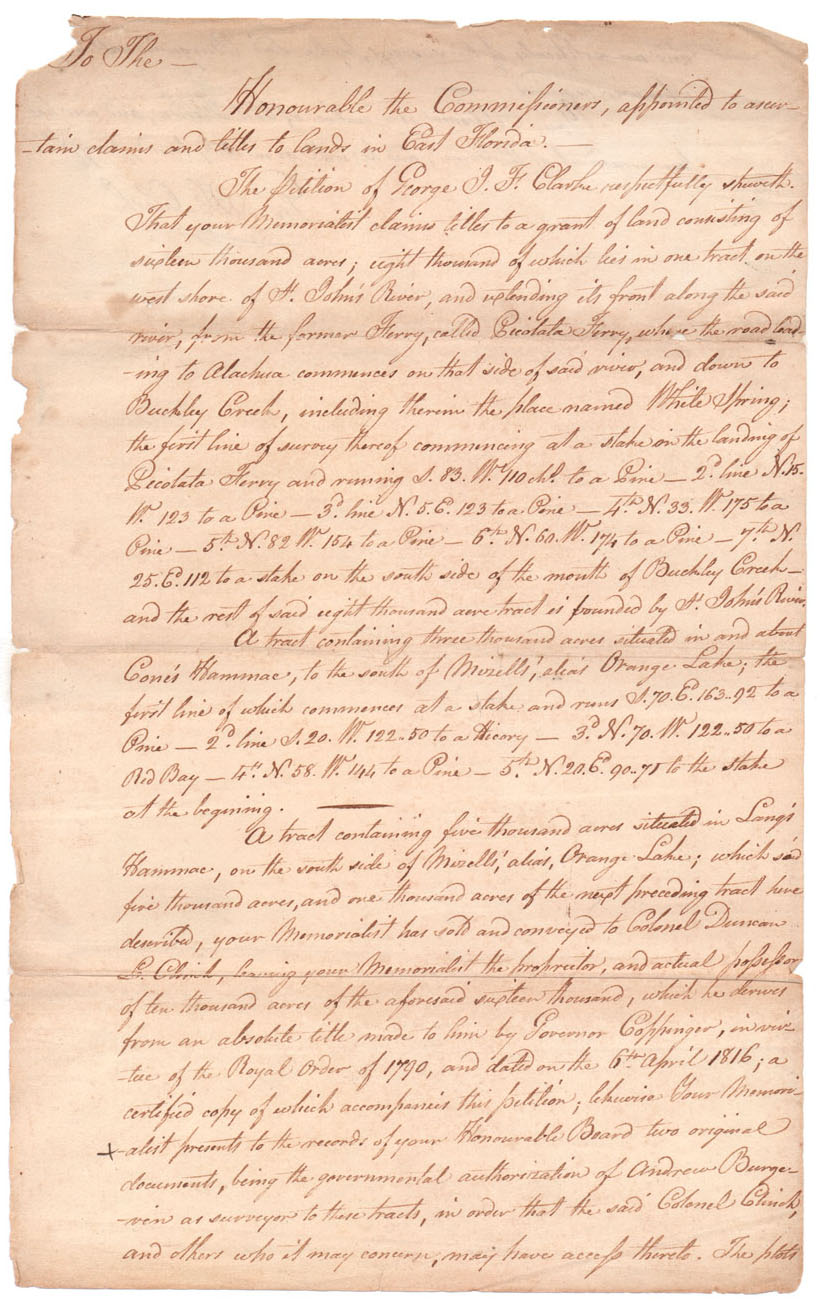 To The —
Honourable the Commissioners, appointed to ascer-
-tain claims and titles to lands in East Florida. —
The Petition of George J. F. Clarke respectfully sheweth.
That your Memorialist claims titles to a grant of land consisting of
sixteen thousand acres; eight thousand of which lies in one tract on the
west shore of St. John's River, and extending its front along the said
river, from the former Ferry, called Picolata Ferry, where the road lead-
-ing to Alachua commences on that side of said river, and down to
Buckley Creek, including therein the place named White Spring;
the first line of survey thereof commencing at a stake on the landing of
Picolata Ferry and runing S. 83. W. 110 chs. to a Pine — 2d. line N. 15.
W. 123 to a Pine — 3d. line N. 5. E. 123 to a Pine — 4th N. 33. W. 175 to a
Pine — 5th N. 82 W. 154 to a Pine — 6th N. 60. W. 174 to a Pine — 7th N.
25. E. 112 to a stake on the south side of the mouth of Buckley Creek —
and the rest of said eight thousand acre tract is founded by St. John's River.
A tract containing three thousand acres situated in and about
Cone's Hammac, to the south of Mizells', alias Orange Lake; the
first line of which commences at a stake and runs S. 70. E. 163..92 to a
Pine — 2d. line S. 20. W. 122..50 to a Hicory — 3d. N. 70. W. 122..50 to a
Red Bay — 4th N. 58. W. 144 to a Pine — 5th N. 20. E. 90..71 to the stake
at the begining.
A tract containing five thousand acres situated in Lang's
Hammac, on the south side of Mizells', alias, Orange Lake; which said
five thousand acres, and one thousand acres of the next preceding tract here
described, your Memorialist has sold and conveyed to Colonel Duncan
L. Clinch, leaving your Memorialist the proprietor, and actual possessor
of ten thousand acres of the aforesaid sixteen thousand, which he derives
from an absolute title made to him by Governor Coppinger, in vir-
-tue of the Royal Order of 1790, and dated on the 6th April 1816; a
certified copy of which accompanies this petition; likewise Your Memori-
+ -alist presents to the records of your Honourable Board two original
documents, being the governmental authorization of Andrew Burge-
-vin as surveyor to these tracts, in order that the said Colonel Clinch,
and others who it may concern, may have access thereto. The plots